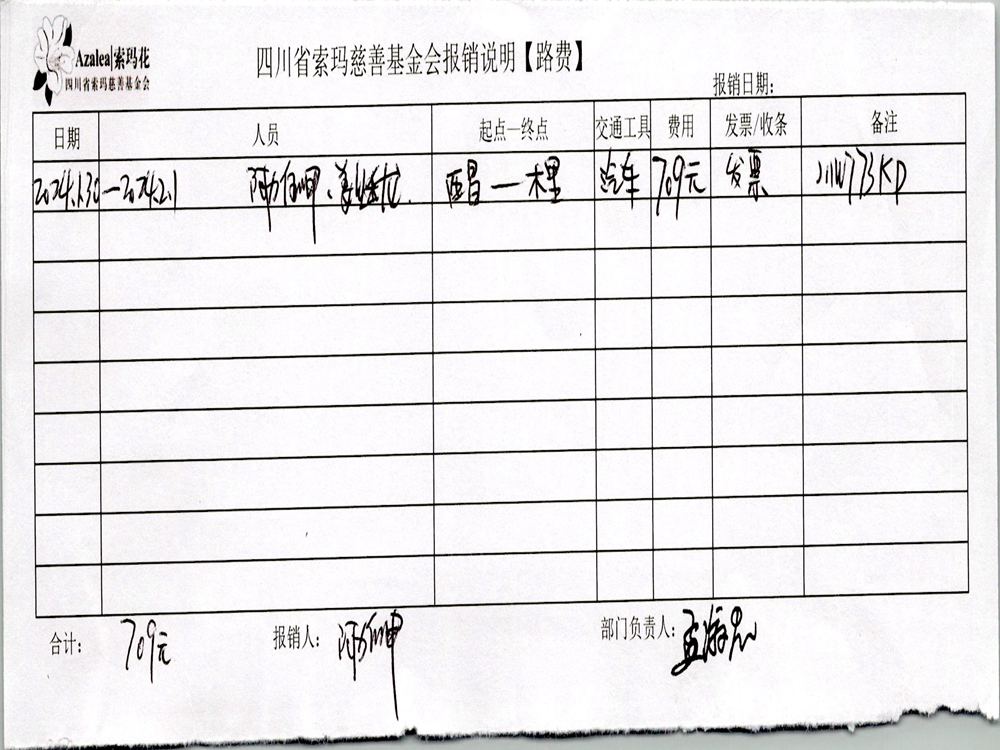 Azalea|索玛花
四川省索玛慈善基金会
四川省索玛慈善基金会报销说明【路费】
报销日期:
日期 人员 起点—终点 交通工具 费用 发票/收条 备注
2024.1.30—2024.2.1 西昌—木里 汽车 709元 发票 川W773KD
合计: 709元 报销人: 部门负责人: